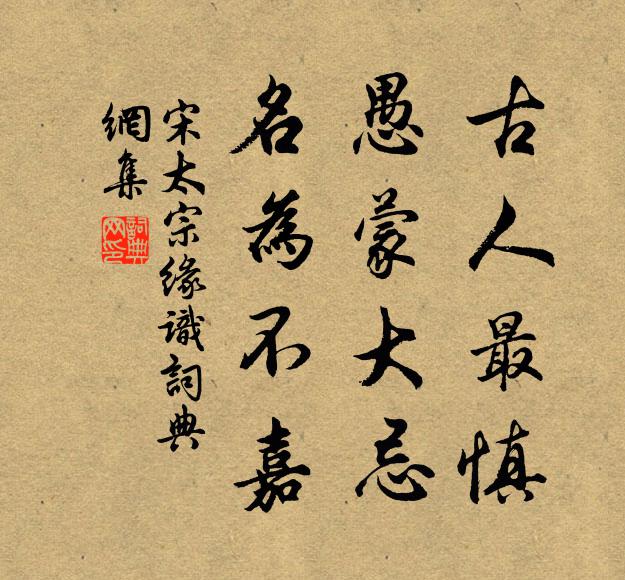 古人最慎
愚蒙大忌
名為不嘉
宋太宗緣識詞典
網集
詞典
网印